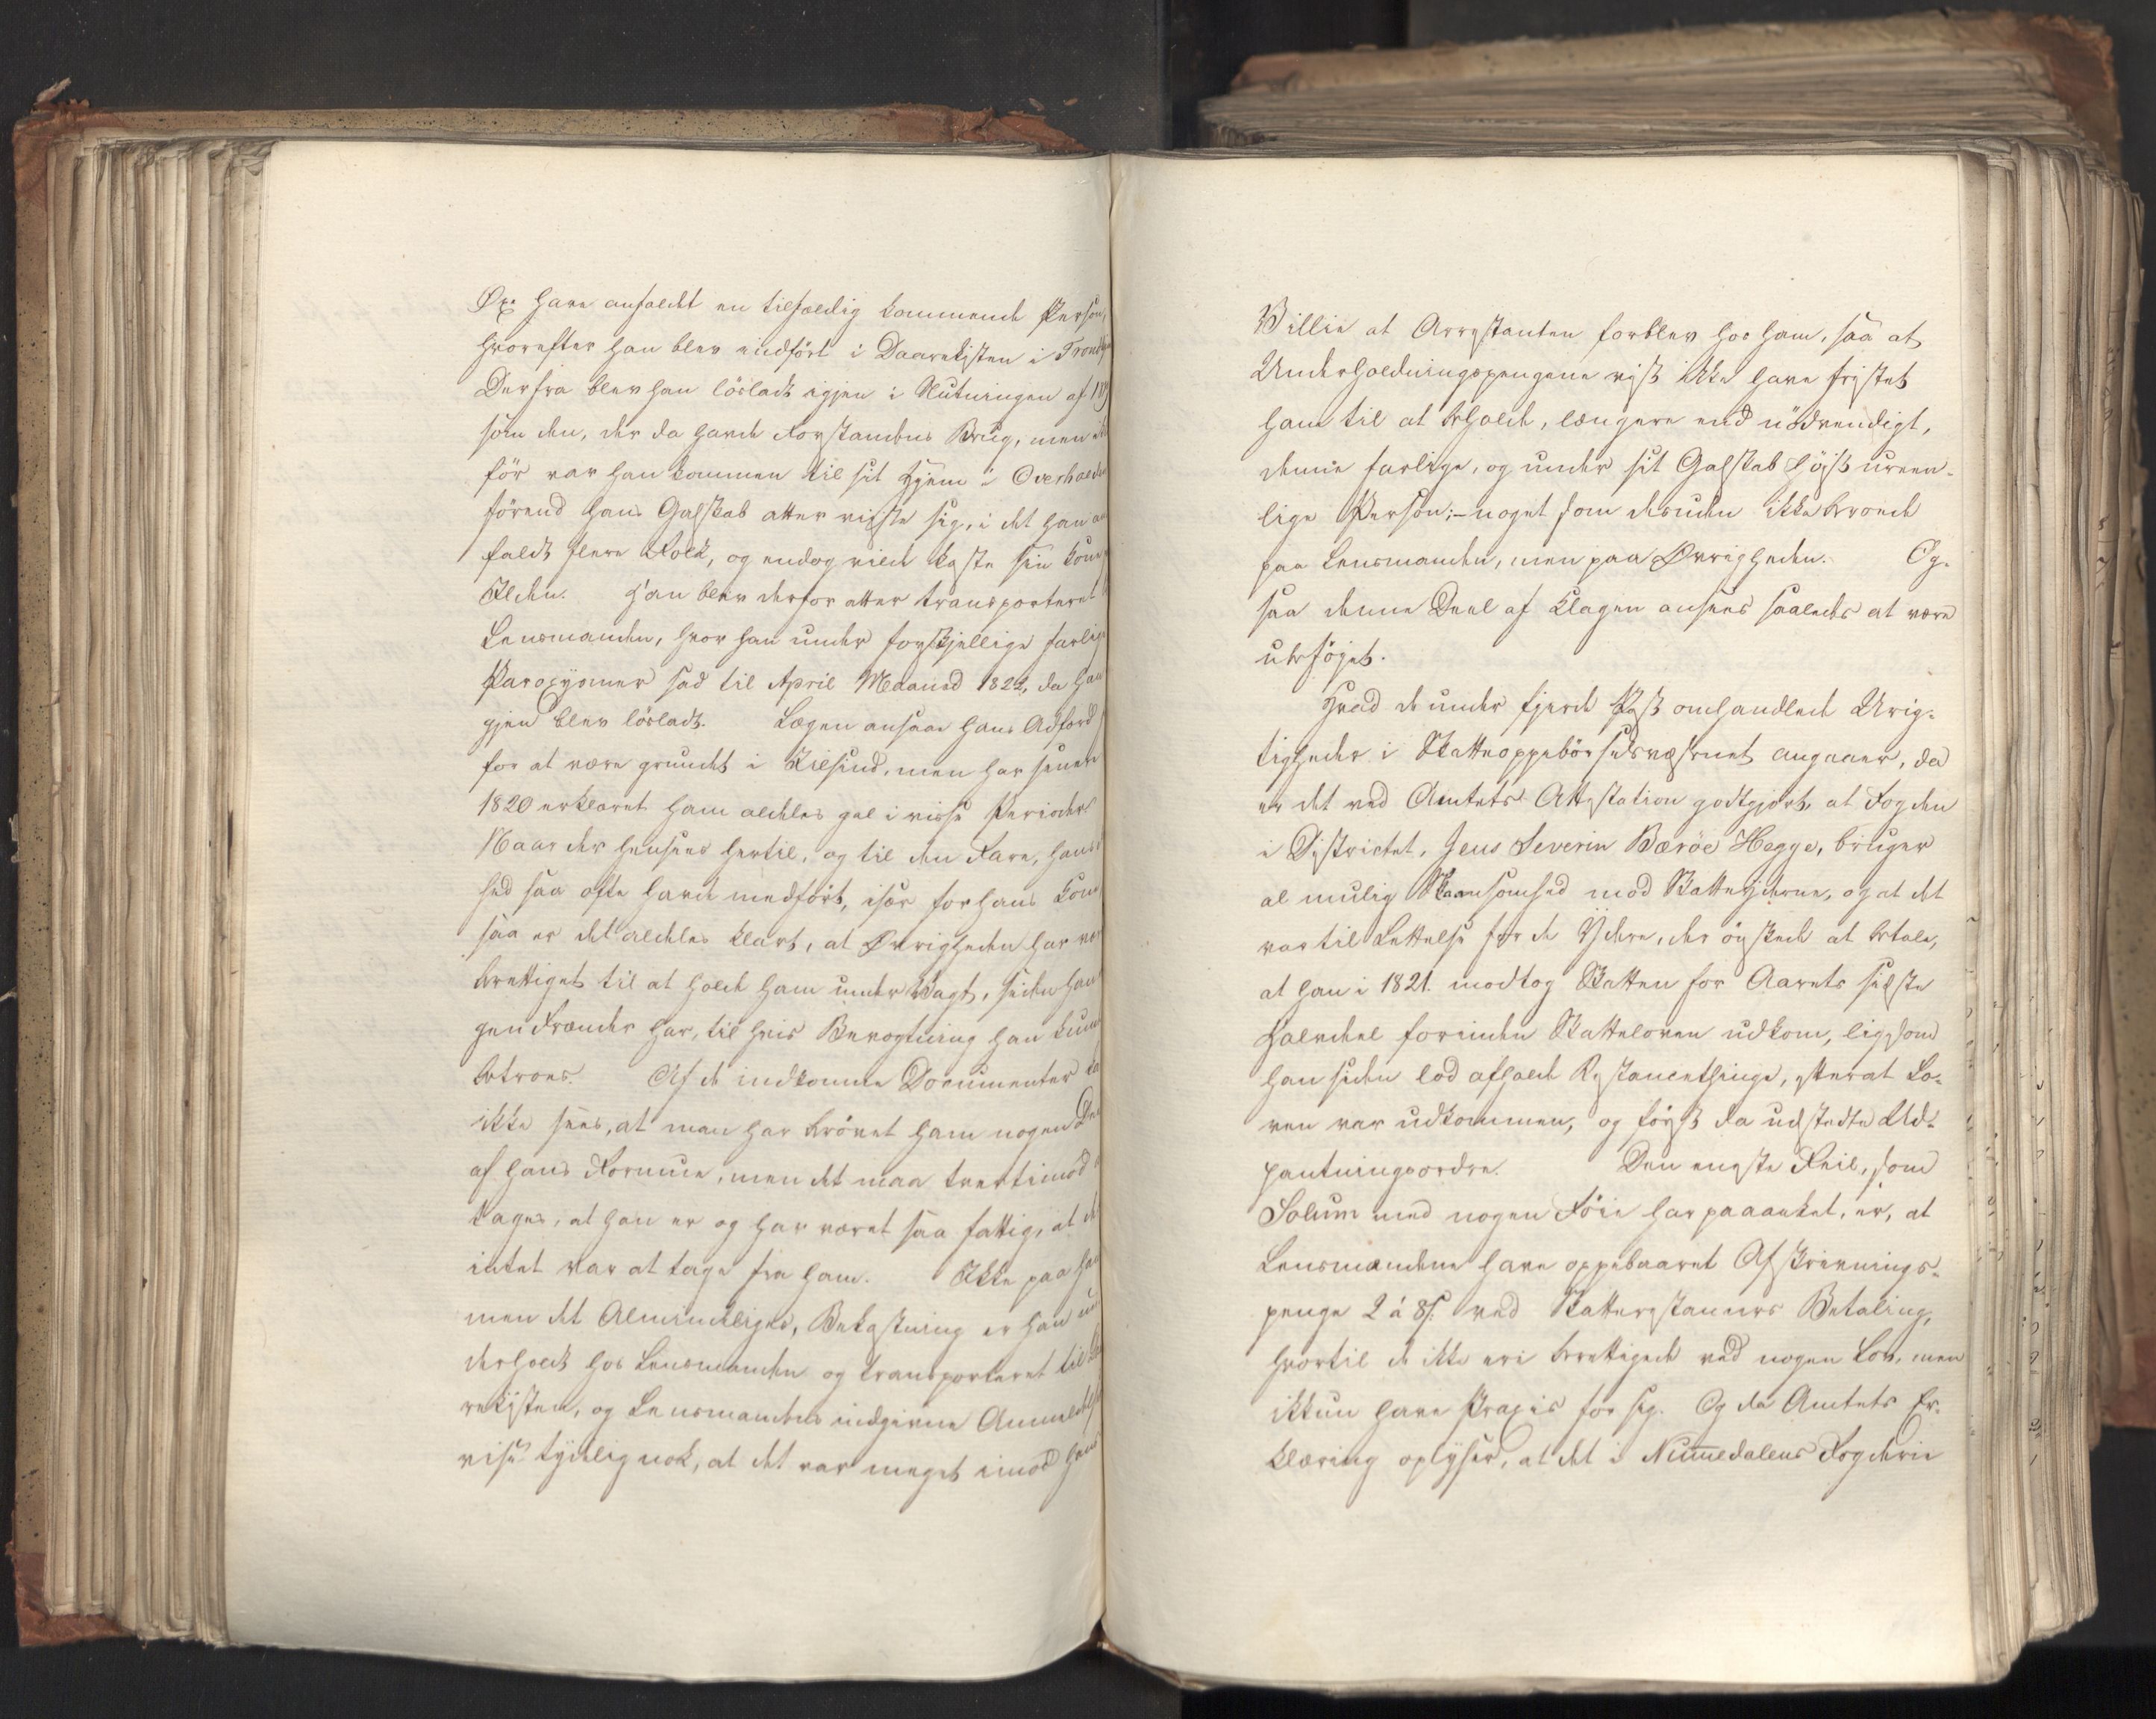 Øxe have anfaldt en tilfældig kommende Person,
hvorefter han blev indført i Daarekisten i Trond
Derfra blev han løsladt igjen i Slutningen af 18
som den, der da havde Forstandens Brug, men
før var han kommen til sit Hjem i Overhald
førend hans Galskab atter viiste sig, i det han
faldt flere Folk, og endog vilde kaste sin Kone
Ilden. Han blev derfor atter transporteret
Lensmanden, hvor han under forskjellige farlig
Paroxysmer sad til April Maaned 1822, da han
gjen blev løsladt. Lægen ansaae hans Adfærd
for at være grundet i Tilsind, men har senere
1820 erklæret ham aldeles gal i visse Perioder.
Naar der henseees hertil, og til den Fare, hans
hed saa ofte havde medført, især for hans Kone
saa er det aldeles klart, at Øvrigheden har
berettiget til at holde ham under Vagt, siden han
gen Frænder har, til hvis Bevogtning han kun
betroes. Af de indkomne Documenter
ikke sees, at man har berøvet ham nogen Deel
af hans Formue, men det maa tvertimod
tages, at han er og har været saa fattig, at
intet var at tage fra ham. Ikke paa
men det Almindeliges, Bekostning er han
derholdt hos Lensmanden og transporteret til
rekisten, og Lensmandens indgivne Anmeldelse
vise tydelig nok, at det var meget imod hans
Villie at Arrestanten forblev hos ham, saa at
Underholdningspengene vist ikke have fristet
ham til at beholde, længere end nødvendigt,
denne farlige, og under sit Galskab høist ureen-
lige Person; – noget som desuden ikke beroede
paa Lensmanden, men paa Øvrigheden. Og-
saa denne Deel af Klagen ansees saaledes at være
ubeføjet.
Hvad de under fjerde Post omhandlede Urig-
tigheder i Skatteoppebørselsvæsenet angaaer, da
er det ved Amtets Attestation godtgjort, at Fogden
i Districtet, Jens Severin Bæröe Hegge, bruger
al mulig Skaansomhed mod Skatteyderne, og at det
var til Lettelse for de Ydere, der ønskede at betale,
at han i 1821 modtog Skatten for Aarets sidste
Halvdel forinden Skatteloven udkom, ligesom
han siden lod afholde Restancethinge, efterat Lo-
ven var udkommen, og først da udstedte Ud-
pantningsordre. Den eneste Feil, som
Solum med nogen Föie har paaanket, er, at
Lensmændene have oppebaaret Afskrivnings-
penge 2 á 8 ß. ved Skatterestancers Betaling,
hvortil de ikke ere berettigede ved nogen Lov, men
ikkun have Praxis for sig. Og da Amtets Er-
klæring oplyser, at det i Nummedalens Fogderie